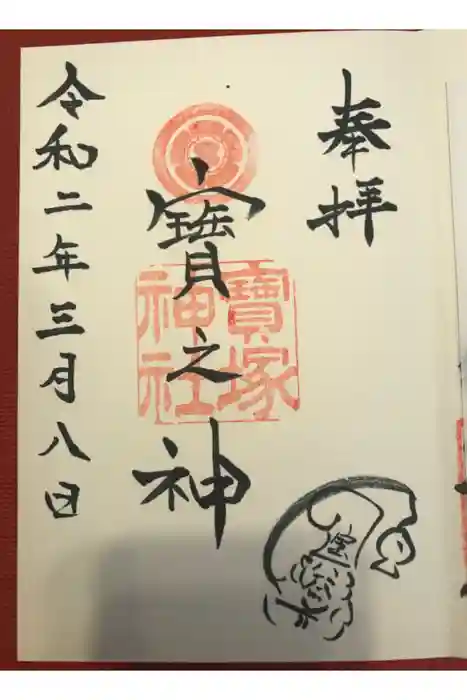 奉拝
寶之神
寶塚
神社
令和二年三月八日